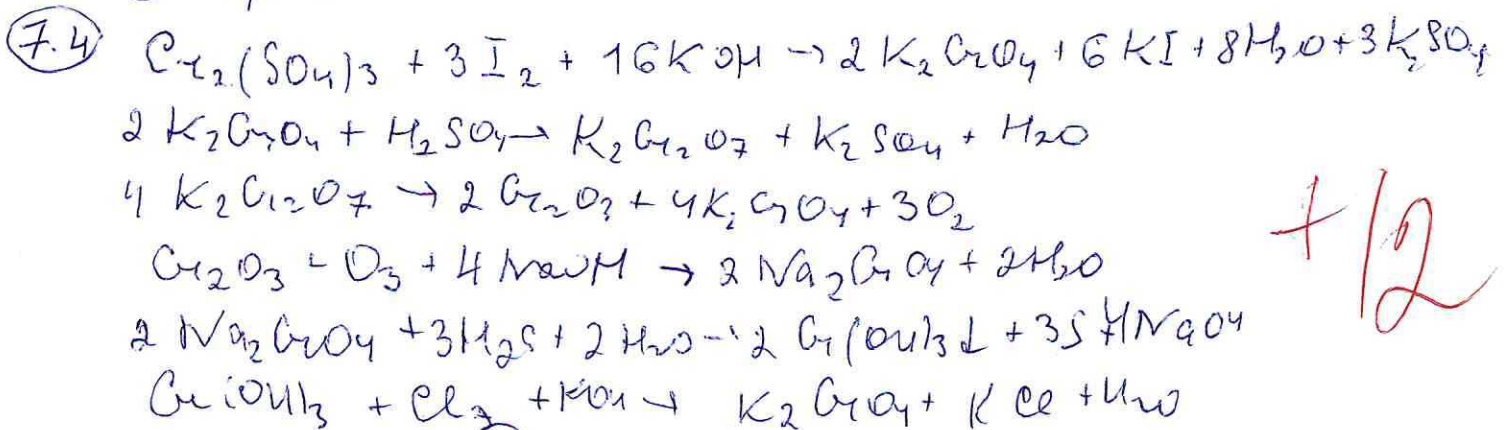 7.4 Cr₂(SO₄)₃ + 3 I₂ + 16 KOH → 2 K₂CrO₄ + 6 KI + 8 H₂O + 3 K₂SO₄
2 K₂CrO₄ + H₂SO₄ → K₂Cr₂O₇ + K₂SO₄ + H₂O
4 K₂Cr₂O₇ → 2 Cr₂O₃ + 4 K₂CrO₄ + 3 O₂
Cr₂O₃ + O₃ + 4 NaOH → 2 Na₂CrO₄ + 2 H₂O
2 Na₂CrO₄ + 3 H₂S + 2 H₂O → 2 Cr(OH)₃↓ + 3 S + 4 NaOH
Cr(OH)₃ + Cl₂ + KOH → K₂CrO₄ + KCl + H₂O
+12